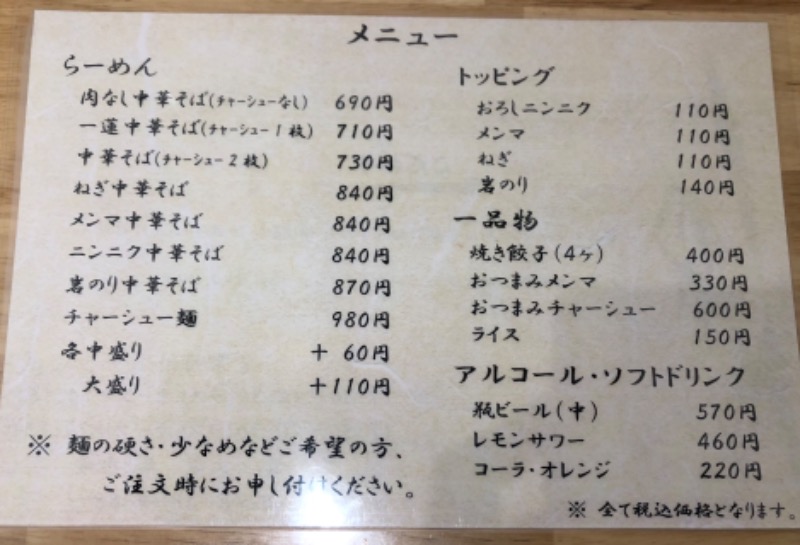 メニュー
らーめん
肉なし中華そば(チャーシューなし) 690円
一蓮中華そば(チャーシュー1枚) 710円
中華そば(チャーシュー2枚) 730円
ねぎ中華そば 840円
メンマ中華そば 840円
ニンニク中華そば 840円
岩のり中華そば 870円
チャーシュー麺 980円
各中盛り + 60円
大盛り +110円
※ 麺の硬さ・少なめなどご希望の方、
ご注文時にお申し付けください。
トッピング
おろしニンニク 110円
メンマ 110円
ねぎ 110円
岩のり 140円
一品物
焼き餃子(4ヶ) 400円
おつまみメンマ 330円
おつまみチャーシュー 600円
ライス 150円
アルコール・ソフトドリンク
瓶ビール(中) 570円
レモンサワー 460円
コーラ・オレンジ 220円
※ 全て税込価格となります。